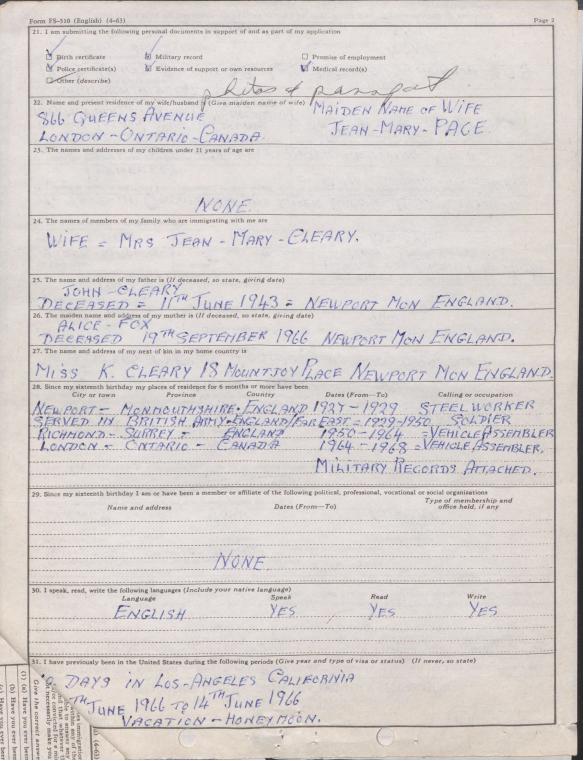 Form FS-510 (English) (4-63) Page 2
21. I am submitting the following personal documents in support of and as part of my application
Birth certificate Military record Promise of employment
Police certificate(s) Evidence of support or own resources Medical record(s)
Other (describe)
photos & passport
22. Name and present residence of my wife/husband (Give maiden name of wife) MAIDEN NAME OF WIFE
866 QUEENS AVENUE JEAN-MARY-PAGE
LONDON-ONTARIO-CANADA.
23. The names and addresses of my children under 21 years of age are
NONE.
24. The names of members of my family who are immigrating with me are
WIFE = MRS JEAN-MARY-CLEARY.
25. The name and address of my father is (If deceased, so state, giving date)
JOHN-CLEARY
DECEASED = 11TH JUNE 1943 = NEWPORT MON ENGLAND.
26. The maiden name and address of my mother is (If deceased, so state, giving date)
ALICE-FOX
DECEASED 19TH SEPTEMBER 1966 NEWPORT MON ENGLAND.
27. The name and address of my next of kin in my home country is
MISS K. CLEARY 18 MOUNTJOY PLACE NEWPORT MON ENGLAND.
28. Since my sixteenth birthday my places of residence for 6 months or more have been
City or town Province Country Dates (From—To) Calling or occupation
NEWPORT - MONMOUTHSHIRE - ENGLAND 1927-1929 STEEL WORKER
SERVED IN BRITISH ARMY-ENGLAND/FAR EAST = 1929-1950 SOLDIER
RICHMOND - SURREY = ENGLAND 1950-1964 =VEHICLE ASSEMBLER
LONDON - ONTARIO - CANADA 1964-1968 =VEHICLE ASSEMBLER.
MILITARY RECORDS ATTACHED.
29. Since my sixteenth birthday I am or have been a member or affiliate of the following political, professional, vocational or social organizations
Name and address Dates (From—To) Type of membership and office held, if any
NONE
30. I speak, read, write the following languages (Include your native language)
Language Speak Read Write
ENGLISH YES YES YES
31. I have previously been in the United States during the following periods (Give year and type of visa or status) (If never, so state)
DAYS IN LOS-ANGELES CALIFORNIA
TH JUNE 1966 TO 14TH JUNE 1966
VACATION - HONEYMOON.
(4-63)
Give the correct answer
(1) (a) Have you ever been
(b) Have you ever been
(c) Have you ever been